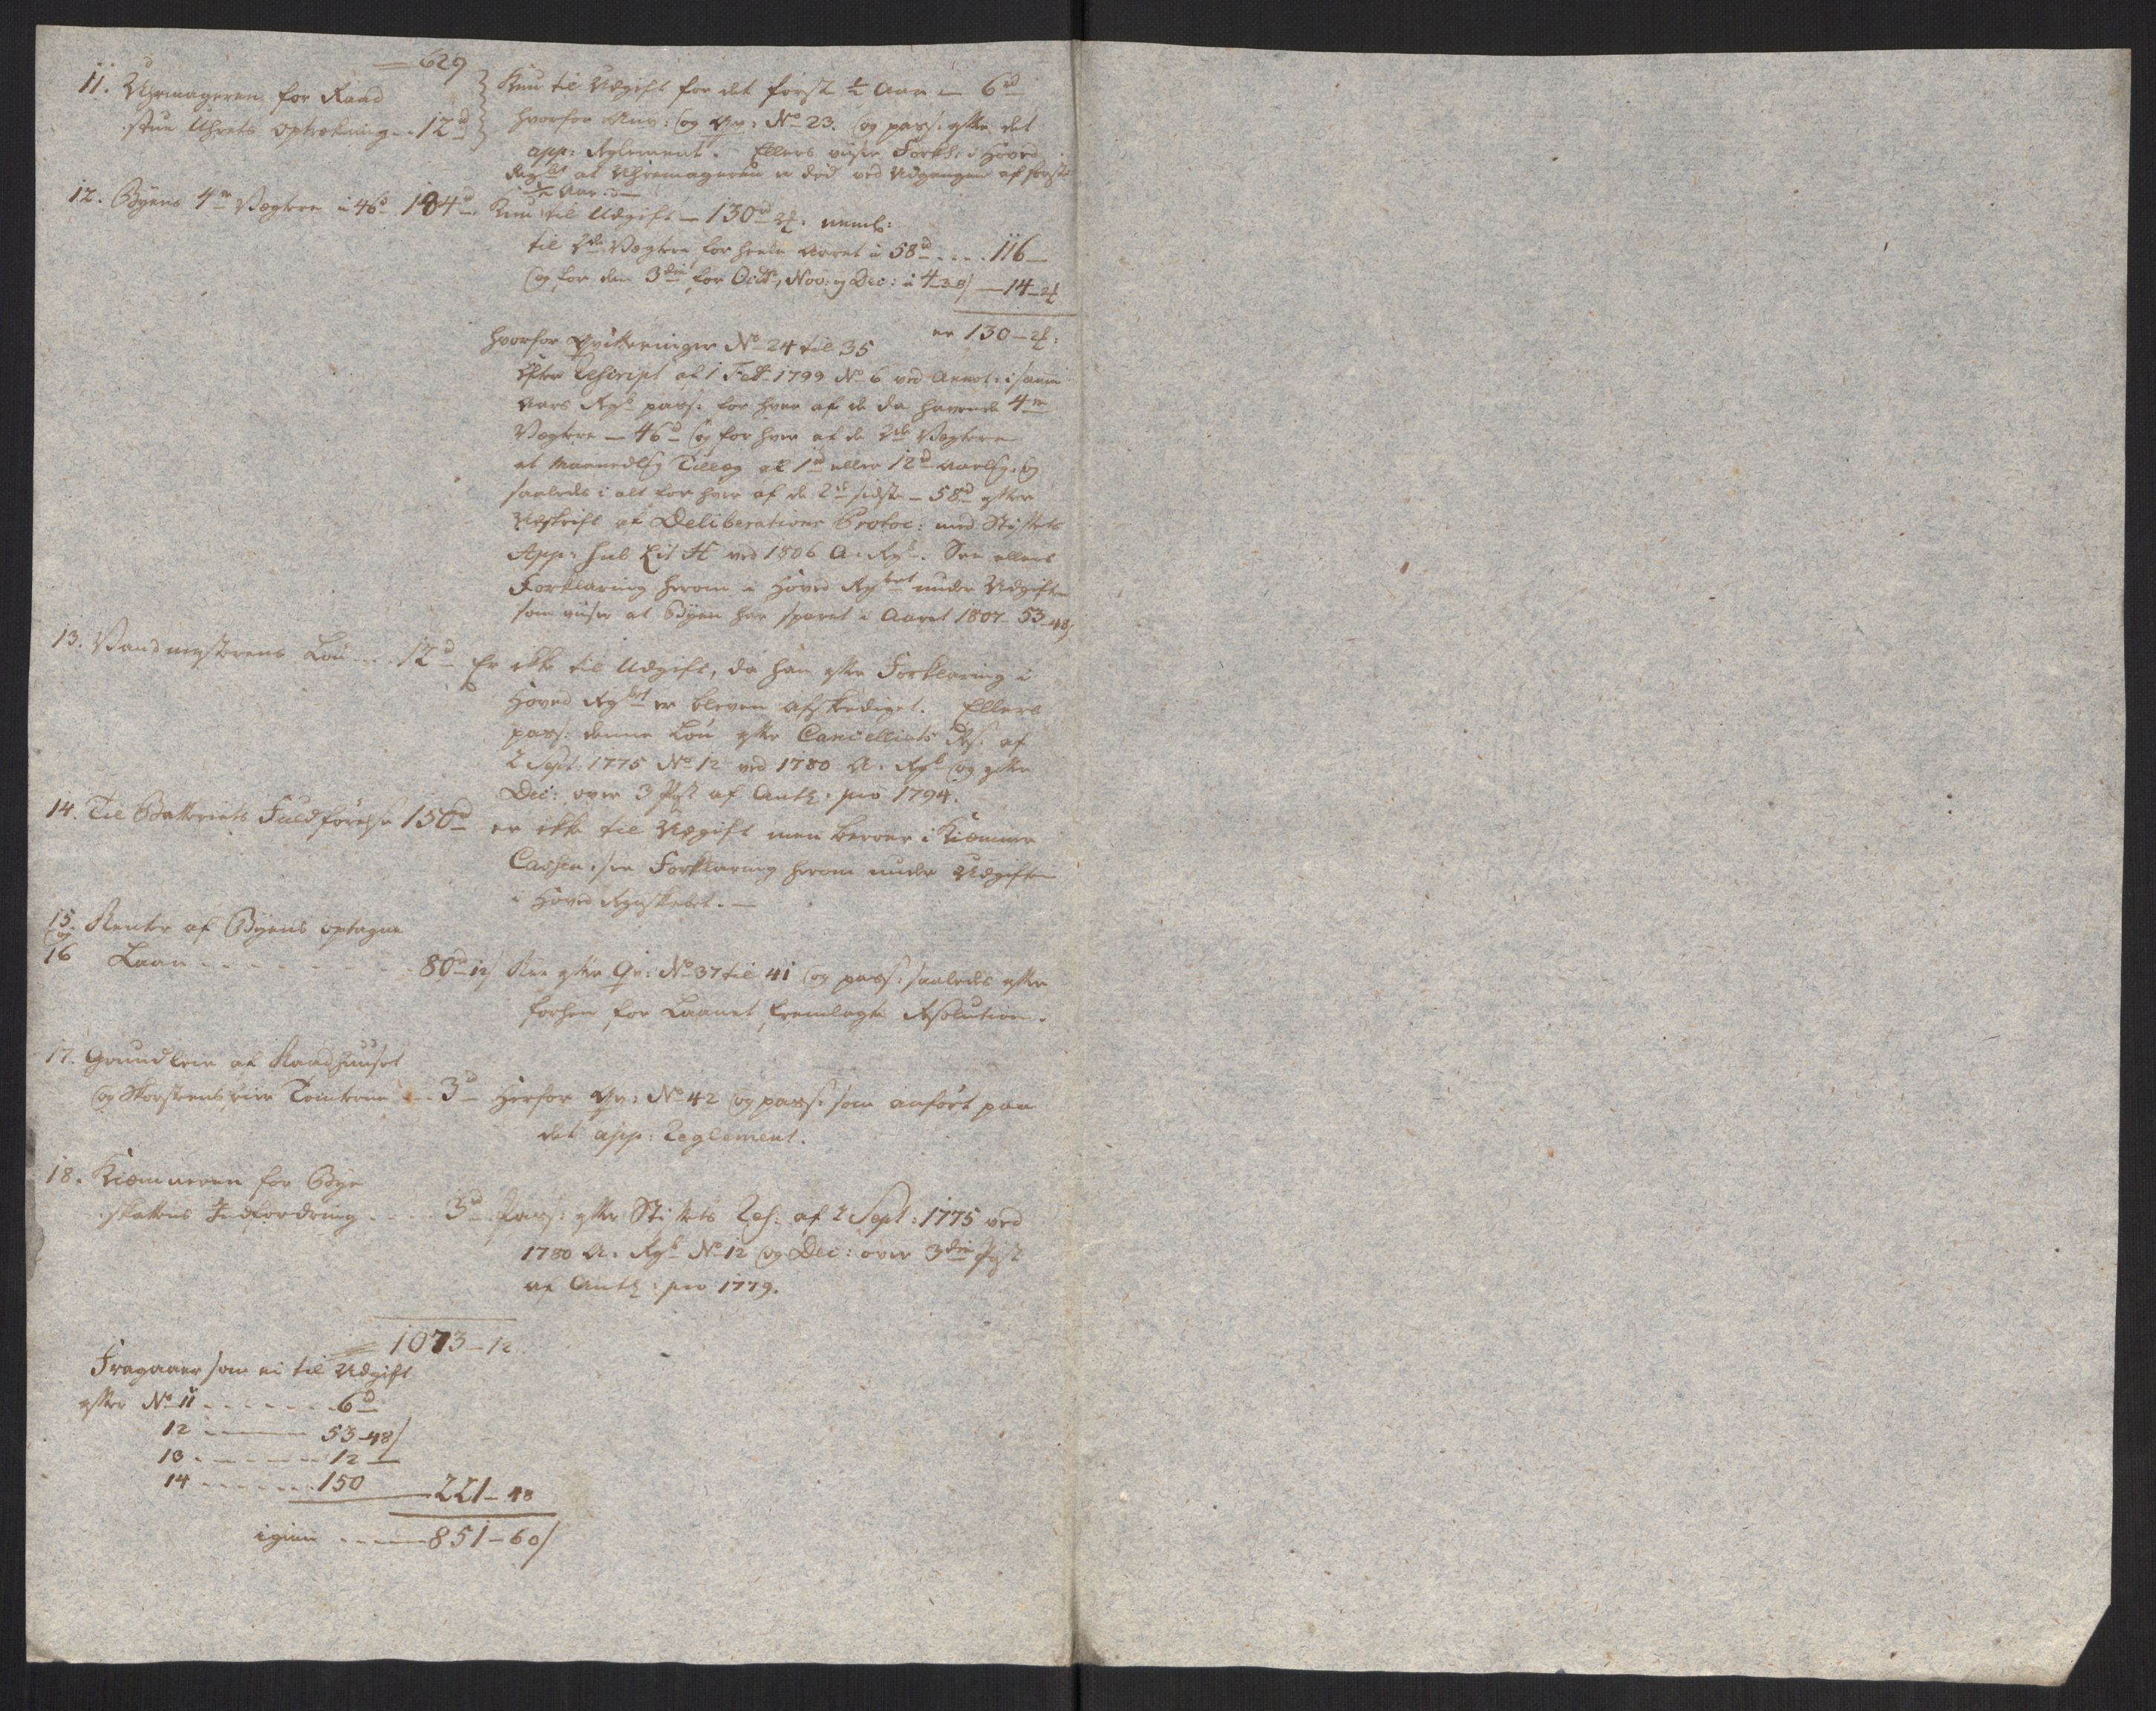 629
11. Uhrmageren for Raad
stue Uhrets optrækning .. 12 d
Kun til Udgift for det første ½ Aar — 6 d
hvorfor Anv: og Qv: No 23. og pass: efter det
app: Reglement. Ellers viiser Forkl: i Hoved
Regsk at Uhrmageren er død ved Udgangen af første
½ Aar. —
12. Byens 4re Vægtere a 46 d 184 d
Kun til Udgift — 130 d 24. neml:
til 2de Vægtere for heele Aaret a 58 d .... 116 —
og for den 3die for Octb, Nov: og Dec: a 4-3-8 — 14-24
er 130-24:
hvorfor Qvitteringer No 24 til 35
Efter Rescript af 1 Febr 1799 No 6 ved Annot: i samme
Aars Rgsk pass: for hver af de da havende 4re
Vægtere — 46 d og for hver af de 2de Vægtere
et maanedlig Tillæg af 1 d eller 12 d aarlig, og
saaledes i alt for hver af de 2de sidste — 58 d efter
Udskrift af Deliberations Protoc: med Stiftets
App: sub Lit H ved 1806 A: Rgsk. See ellers
Forklaring herom i Hoved Rgsket under Udgiften
som viiser at Byen har sparet i Aaret 1807 53-48
13. Vandmesterens Løn ... 12 d
Er ikke til Udgift, da han efter Forklaring i
Hoved Rgsket er bleven afskediget. Ellers
pass: denne Løn efter Cancelliets Res: af
2 Sept: 1775 No 12 ved 1780 A: Rgsk og efter
Dec: over 3 Post af Antg: pro 1794.
14. Til Batteriets Fuldførelse 150 d
er ikke til Udgift men beroer i Kiæmner
Cassen, see Forklaring herom under Udgiften
i Hoved Regnskabet. —
15. Renter af Byens optagne
og
16 Laan . . . . . . . . 80 d 12
Er efter Qv: No 37 til 41 og pass: saaledes efter
forhen for Laanet fremlagte Resolution.
17. Grundleie af Raadhuuset
og Skorsteensfeier Tomterne .. 3 d
Herfor Qv: No 42 og pass: som anført paa
det app: Reglement.
18. Kiæmneren for Bye
skattens Indfordring . . . 5 d
Pass: efter Stiftets Res: af 2 Sept: 1775 ved
1780 A: Rgsk No 12 og Dec: over 3die Post
af Antg: pro 1779.
1073-12
Fragaaer som ei til Udgift
efter No 11 . . . . . . 6 d
12 . — 53-48
13 . — 12 —
14 . . . . . . 150 — 221-48
igien . . . — 851-60